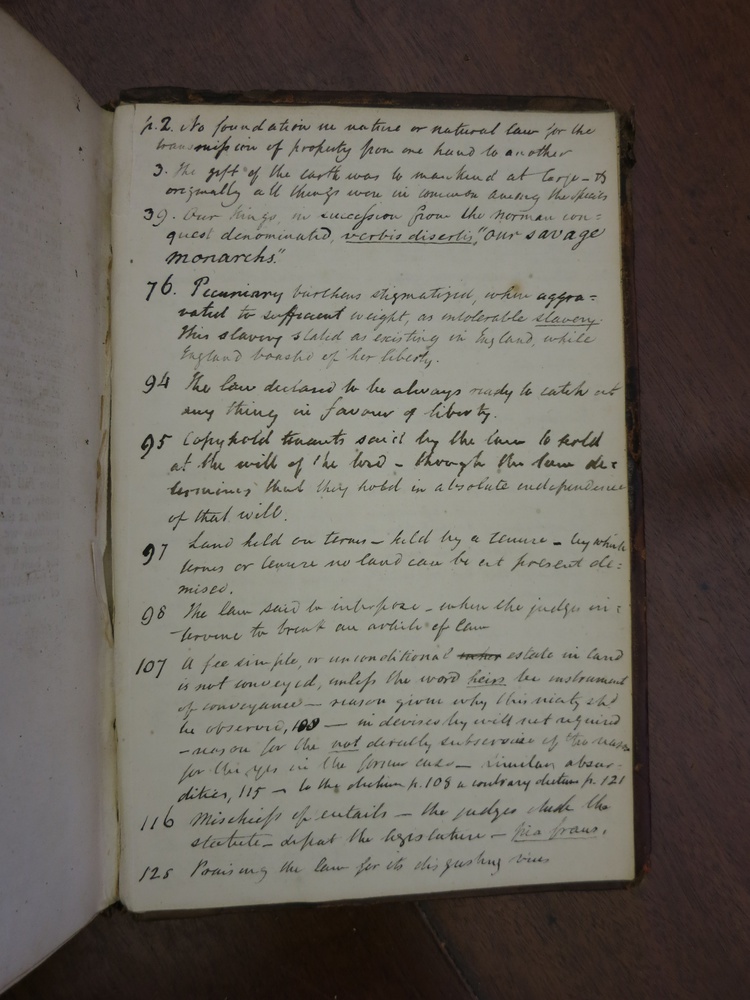 p. 2. No foundation in nature or natural law for the
transmission of property from one hand to another
3. The gift of the earth was to mankind at large - &
originally all things were in common among the species
39. Our kings, in succession from the Norman con=
quest denominated, verbis disertis, "our savage
monarchs."
76. Pecuniary burthens stigmatized, when aggra=
vated to sufficient weight, as intolerable slavery.
This slavery stated as existing in England, while
England boasted of her liberty.
94 The law declared to be always ready to catch at
any thing in favour of liberty.
95 Copyhold tenants said by the law to hold
at the will of the lord - though the law de=
termines that they hold in absolute independence
of that will.
97 Land held on terms - held by a tenure - by which
terms or tenure no land can be at present de=
mised.
98 The law said to interpose - when the judges in=
tervene to break an article of law
107 A fee simple, or unconditional estate in land
is not conveyed, unless the word heirs be instrument
of conveyance - reason given why this nicety shd
be observed, 108 - in devises by will not required
- reason for the not directly subversive of the reason
for the yes in the former case - similar absur=
dities, 115 - to the dictum p. 108 a contrary dictum p. 121
116 Mischiefs of entails - the judges elude the
statute - defeat the legislature - pia fraus.
125 Praising the law for its disgusting vices